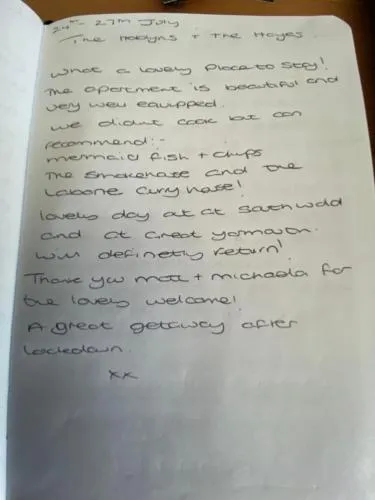 24th - 27th July
The Hodgns + The Hayes
What a lovely place to stay!
The apartment is beautiful and
very well equipped.
We didnt cook but can
recommend:-
mermaid fish + chips
The Smokehouse and the
Labone Curry house!
lovely day out at Southwold
and at Great yarmouth.
Will definetly return!
Thank you matt + michaela for
the lovely welcome!
A great getaway after
lockdown.
xx